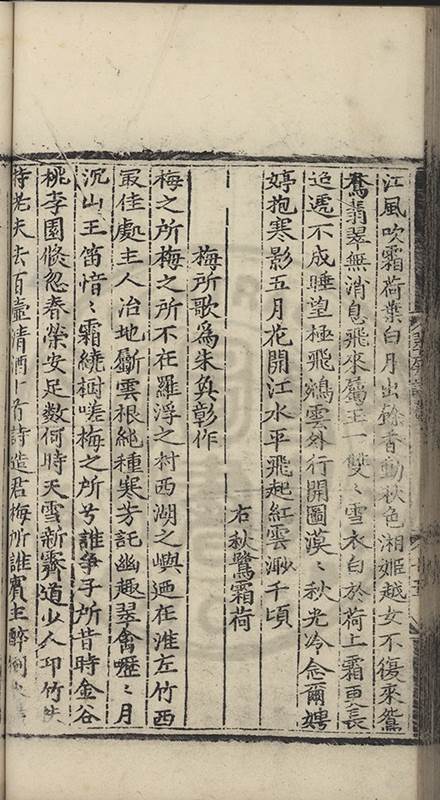 江風吹霜荷葉白月出餘香動秋色湘姬越女不復來鴛
鴦翡翠無消息飛來屬玉一雙〻雪衣白於荷上霜更長
迢遞不成睡望極飛鴻雲外行開圖漠〻秋光冷念爾娉
婷抱寒影五月花開江水平飛起紅雲渺千頃
右秋鷺霜荷
梅所歌爲朱奐彰作
梅之所梅之所不在羅浮之村西湖之嶼迺在淮左竹西
最佳處主人治地斸雲根純種寒芳託幽趣翠禽嚦〻月
沉山玉笛愔〻霜繞樹嗟梅之所兮誰爭子所昔時金谷
桃李園倐忽春榮安足數何時天雪新霽道少人卭竹
待老夫去百壷清酒十首詩造君梅所誰賓主醉倒